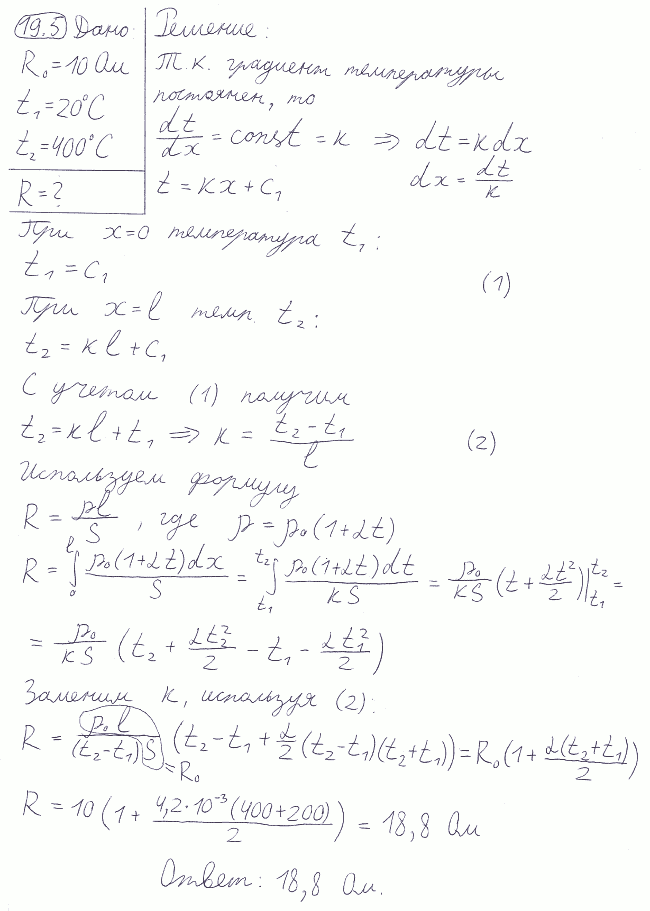 19.5 Дано: Решение:
R₀=10 Ом
t₁=20°C
t₂=400°C
R=?
Т.к. градиент температуры
постоянен, то
dt/dx = const = k ⇒ dt=kdx
t=kx+C₁ dx=dt/k
При x=0 температура t₁:
t₁=C₁ (1)
При x=l темп. t₂:
t₂=kl+C₁
С учетом (1) получим
t₂=kl+t₁ ⇒ k=(t₂-t₁)/l (2)
Используем формулу
R=ρl/S, где ρ=ρ₀(1+αt)
R=∫₀ˡ ρ₀(1+αt)dx/S = ∫_{t₁}^{t₂} ρ₀(1+αt)dt/kS = ρ₀/kS (t+αt²/2)|_{t₁}^{t₂} =
= ρ₀/kS (t₂+αt₂²/2-t₁-αt₁²/2)
Заменим k, используя (2):
R = ρ₀l/(t₂-t₁)S (t₂-t₁+α/2(t₂-t₁)(t₂+t₁))=R₀(1+α(t₂+t₁)/2)
=R₀
R=10(1+4,2·10⁻³(400+200)/2) = 18,8 Ом
Ответ: 18,8 Ом.